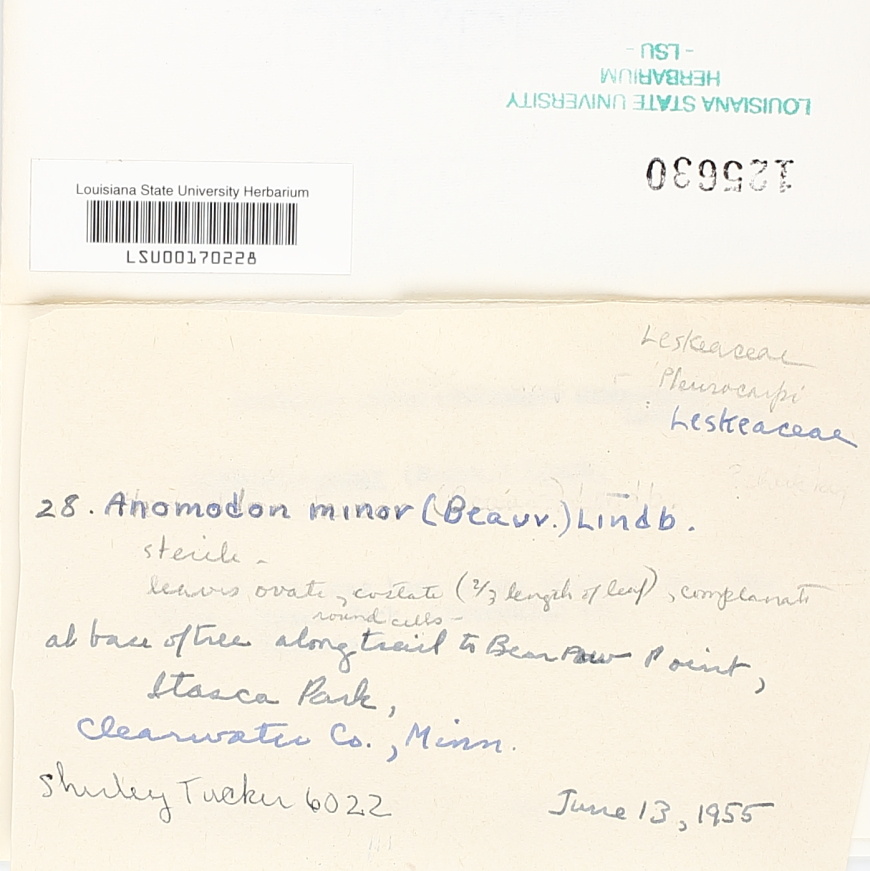 LOUISIANA STATE UNIVERSITY
HERBARIUM
- LSU -
125630
Louisiana State University Herbarium
LSU00170228
Leskeaceae
Pleurocarpi
Leskeaceae
28. Anomodon minor (Beauv.) Lindb.
sterile -
leaves ovate, costate (2/3 length of leaf), complanate
round cells -
at base of tree along trail to Bear Paw Point,
Itasca Park,
Clearwater Co., Minn.
Shirley Tucker 6022
June 13, 1955